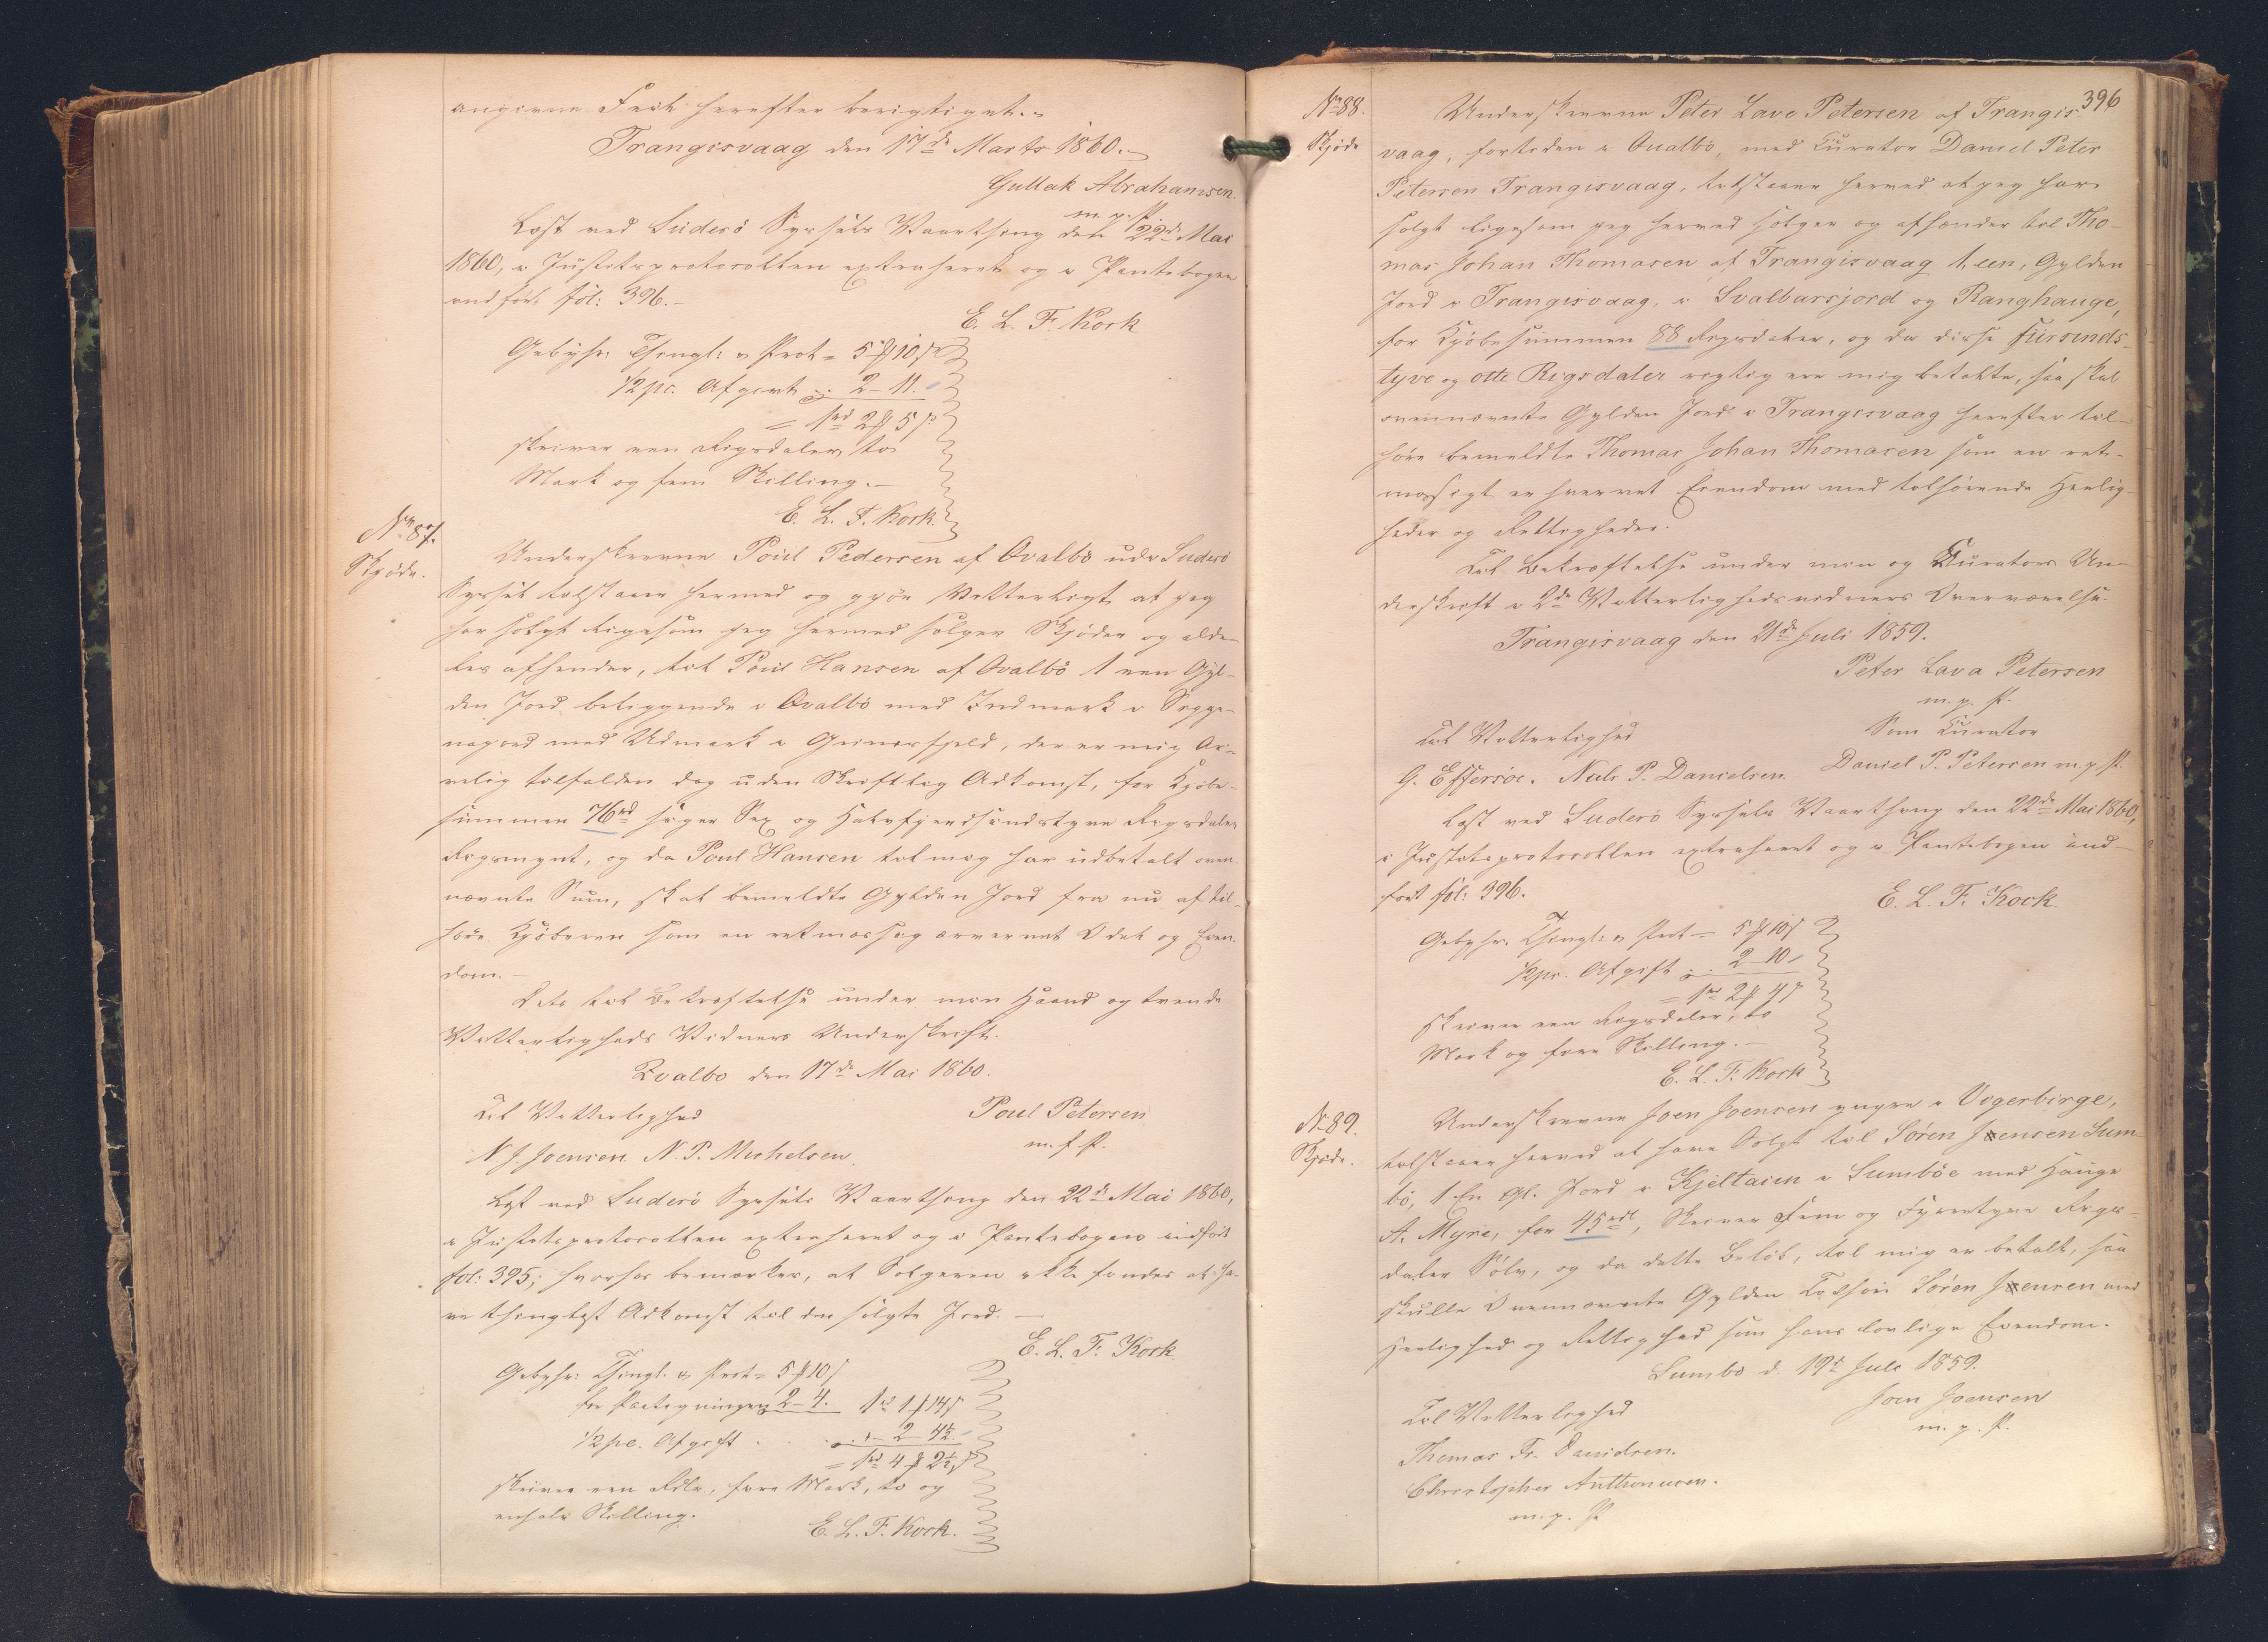 angivne Feil herefter berigtiget.
Trangisvaag den 17de Marts 1860.
Gullak Abrahamsen.
m. p. P.
Læst ved Suderø Syssels Vaarthing den 22de Mai
1860, i Justitsprotocollen extraheret og i Pantebogen
indført fol: 396.
E. L. F. Kock
Gebyhr: Thingl: & Prot = 5 ℳ 10 ß
1/2 pc. Afgivt 2 - 11.
= 1rd 2 ℳ 5 ß
skriver een Rigsdaler, to
Mark og fem Skilling.
E. L. F. Kock.
No 87.
Skjøde.
Underskrevne Poul Pedersen af Qvalbø udi Suderø
Syssel tilstaaer hermed og gjør Vitterligt at jeg
har solgt ligesom jeg hermed sælger Skjøder og alde-
les afhender, til Poul Hansen af Ovalbø 1 een Gyl-
den Jord beliggende i Qvalbø med Indmark i
med Udmark i der er mig Ar-
velig tilfalden dog uden Skriftlig Adkomst, for Kjøbe-
summen 76rd siger Sex og Halvfjerdsindstyve Rigsdaler
Rigsmynt, og da Poul Hansen til mig har udbetalt oven-
nævnte Sum, skal bemeldte Gylden Jord fra nu af til-
høre Kjøberen som en retmæssig erhvervet Odel og Eien-
dom.
Dets til Bekræftelse under min Haand og tvende
Vitterligheds Vidners Underskrift.
Qvalbø den 17de Mai 1860.
Til Vitterlighed
Poul Petersen
m. f. P.
N. J. Joensen N. P. Michelsen.
Læst ved Suderø Syssels Vaarthing den 22de Mai 1860,
i Justitsprotocollen extraheret og i Pantebogen indført
fol: 395; hvorhos bemærkes, at Sælgeren ikke findes at ha-
ve thinglæst Adkomst til den solgte Jord.
E. L. F. Kock
Gebyhr: Thingl. & Prot = 5 ℳ 10 ß
for Paategningen 2 - 4. 1rd 1 ℳ 14 ß
1/2 pc. Afgift 2 - 4½
= 1rd 4 ℳ 2½ ß
skriver een Rdlr, fire Mark, to og
enhalv Skilling.
E. L. F. Kock.
396
No 88.
Skjøde
Underskrevne Peter Lave Petersen af Trangis-
vaag, fortiden i Qualbø, med Curator Daniel Peter
Petersen Trangisvaag, tilstaaer herved at jeg har
solgt ligesom jeg herved sælger og afhænder til Tho-
mas Johan Thomasen af Trangisvaag 1, een, Gylden
Jord i Trangisvaag, i Svalbarsjord og Ranghauge,
for Kjøbesummen 88 Rigsdaler, og da disse fiirsinds-
tyve og otte Rigsdaler rigtig ere mig betalte, saa skal
ovennævnte Gylden Jord i Trangisvaag herefter til-
høre bemeldte Thomas Johan Thomasen som en ret-
mæssigt erhvervet Eiendom med tilhørende Herlig-
heder og Rettigheder.
Til Bekræftelse under min og Curators Un-
derskrift i 2de Vitterlighedsvidners Overværelse.
Trangisvaag den 21de Juli 1859.
Peter Lava Petersen
m. p. P.
Til Vitterlighed
Som Curator
G. Effersøe. Niels P. Danielsen. Daniel P. Petersen m. p. P.
Læst ved Suderø Syssels Vaarthing den 22de Mai 1860,
i Justitsprotocollen extraheret og i Pantebogen ind-
ført fol: 396.
E. L. F. Kock.
Gebyhr. Thingl: & Prot = 5 ℳ 10 ß
1/2 pc. Afgift 2 - 10
= 1rd 2 ℳ 4 ß
skriver een Rigsdaler, to
Mark og fire Skilling.
E. L. F. Kock
No 89.
Skjøde.
Underskrevne Joen Joensen yngre i Vogerbirge,
tilstaaer herved at have Solgt til Søren Jensen Sum-
bø, 1 En Gl. Jord i Kjeltaien i Sumbøe med Hauge
A. Myre, for 45rdl, Skriver Fem og Fyrretyve Rigs-
daler Sølv, og da dette Beløb, til mig er betalt, saa
skulle Ovennævnte Gylden Tilhøre Søren Jensen med
Herlighed og Rettighed som hans lovlige Eiendom.
Sumbø d. 19d Juli 1859.
Til Vitterlighed
Joen Joensen
m. p. P.
Thomas Fr. Davidsen.
Christopher Anthoniusen.
m. p. P.